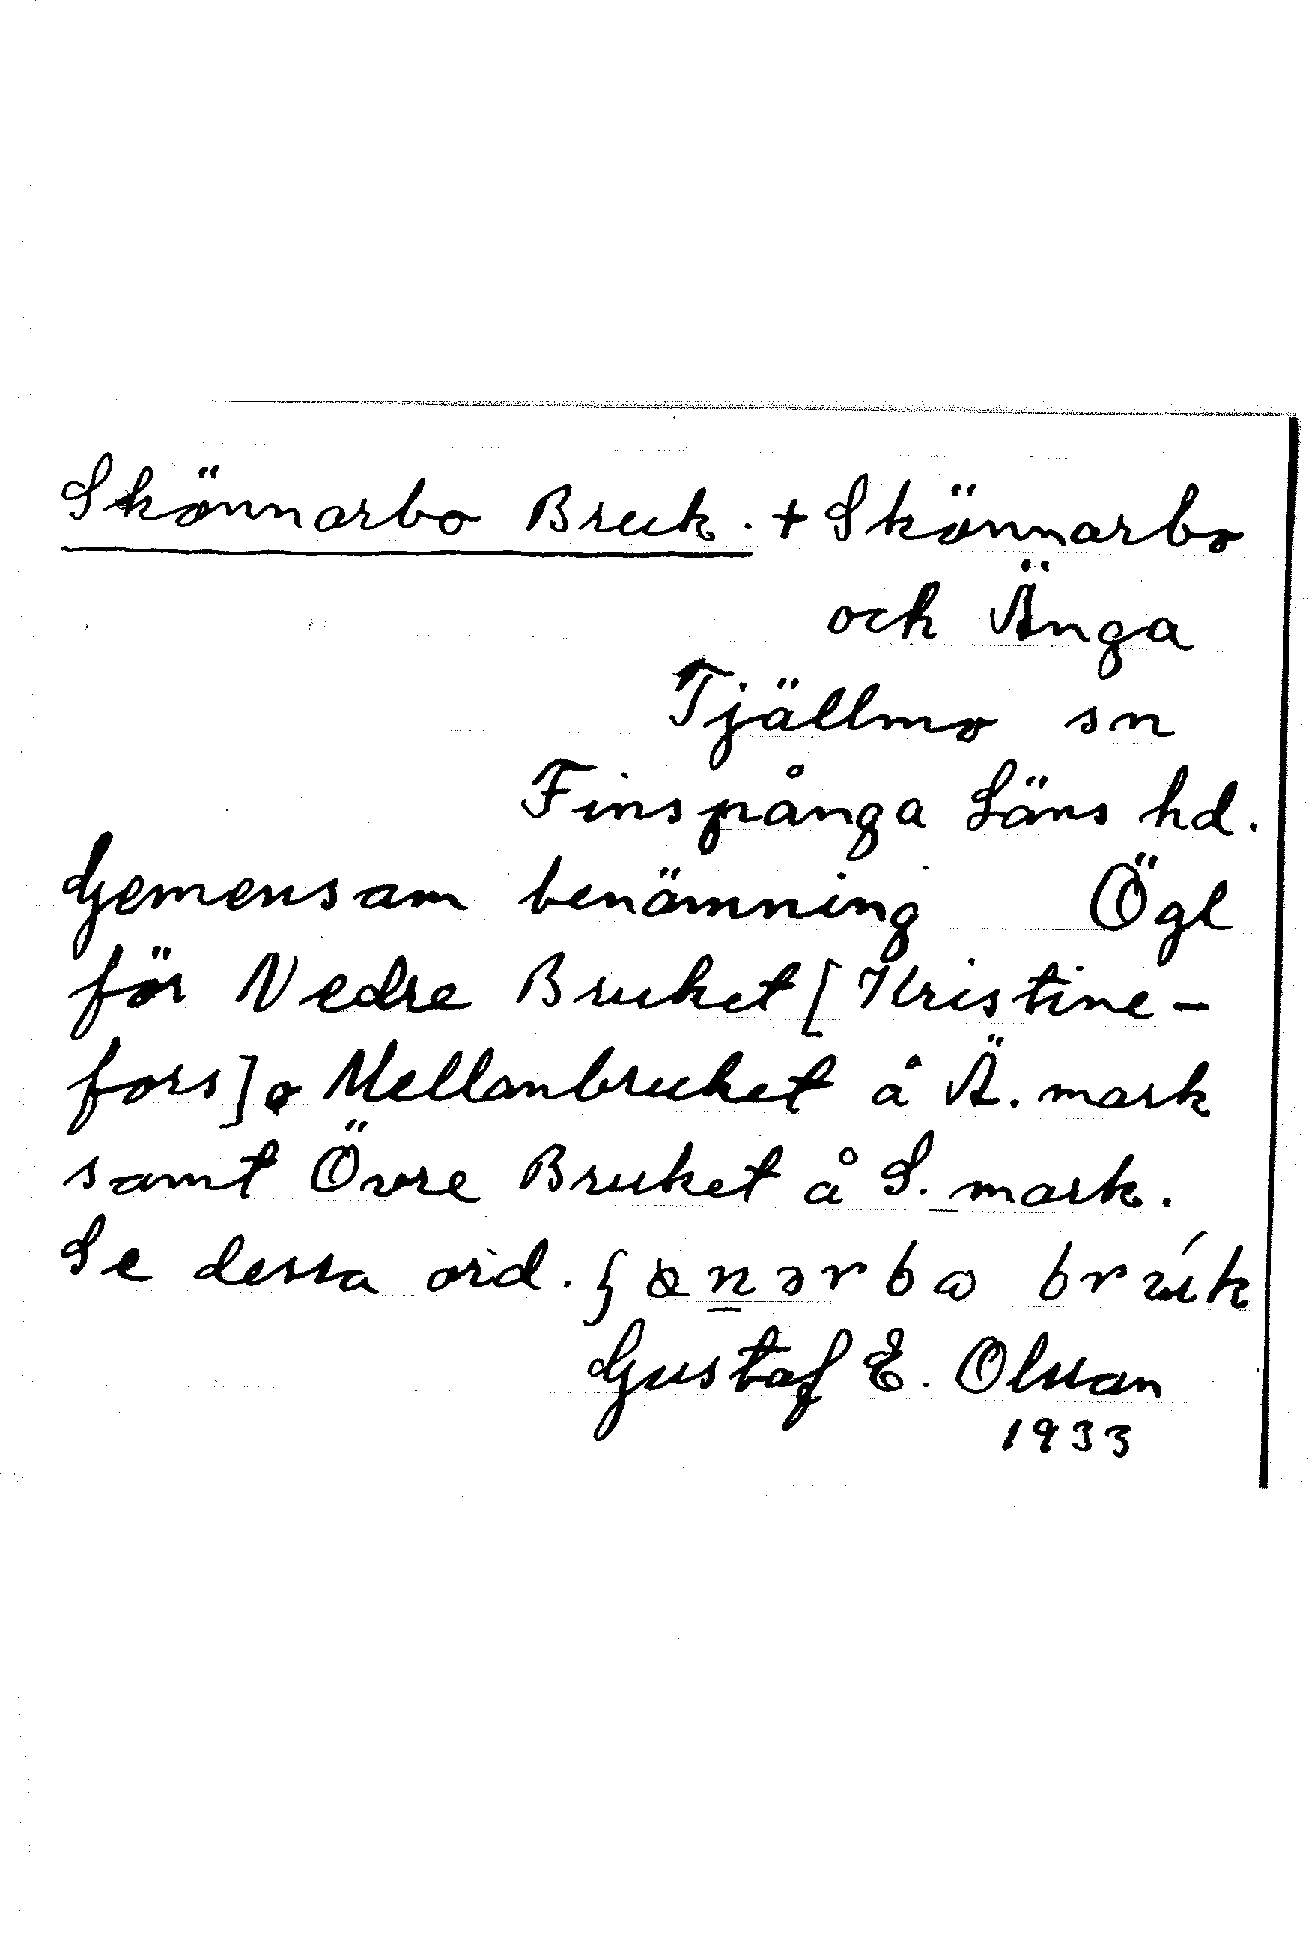 Skönnarbo Bruk. + Skönnarbo
och Änga
Tjällmo sn
Finspånga Läns hd.
Gemensam benämning Ögl
för Nedre Bruket [Kristine-
fors] o Mellanbruket å Ä. mark
samt Övre Bruket å S. mark.
Se dessa ord.
Gustaf E. Olsson
1933